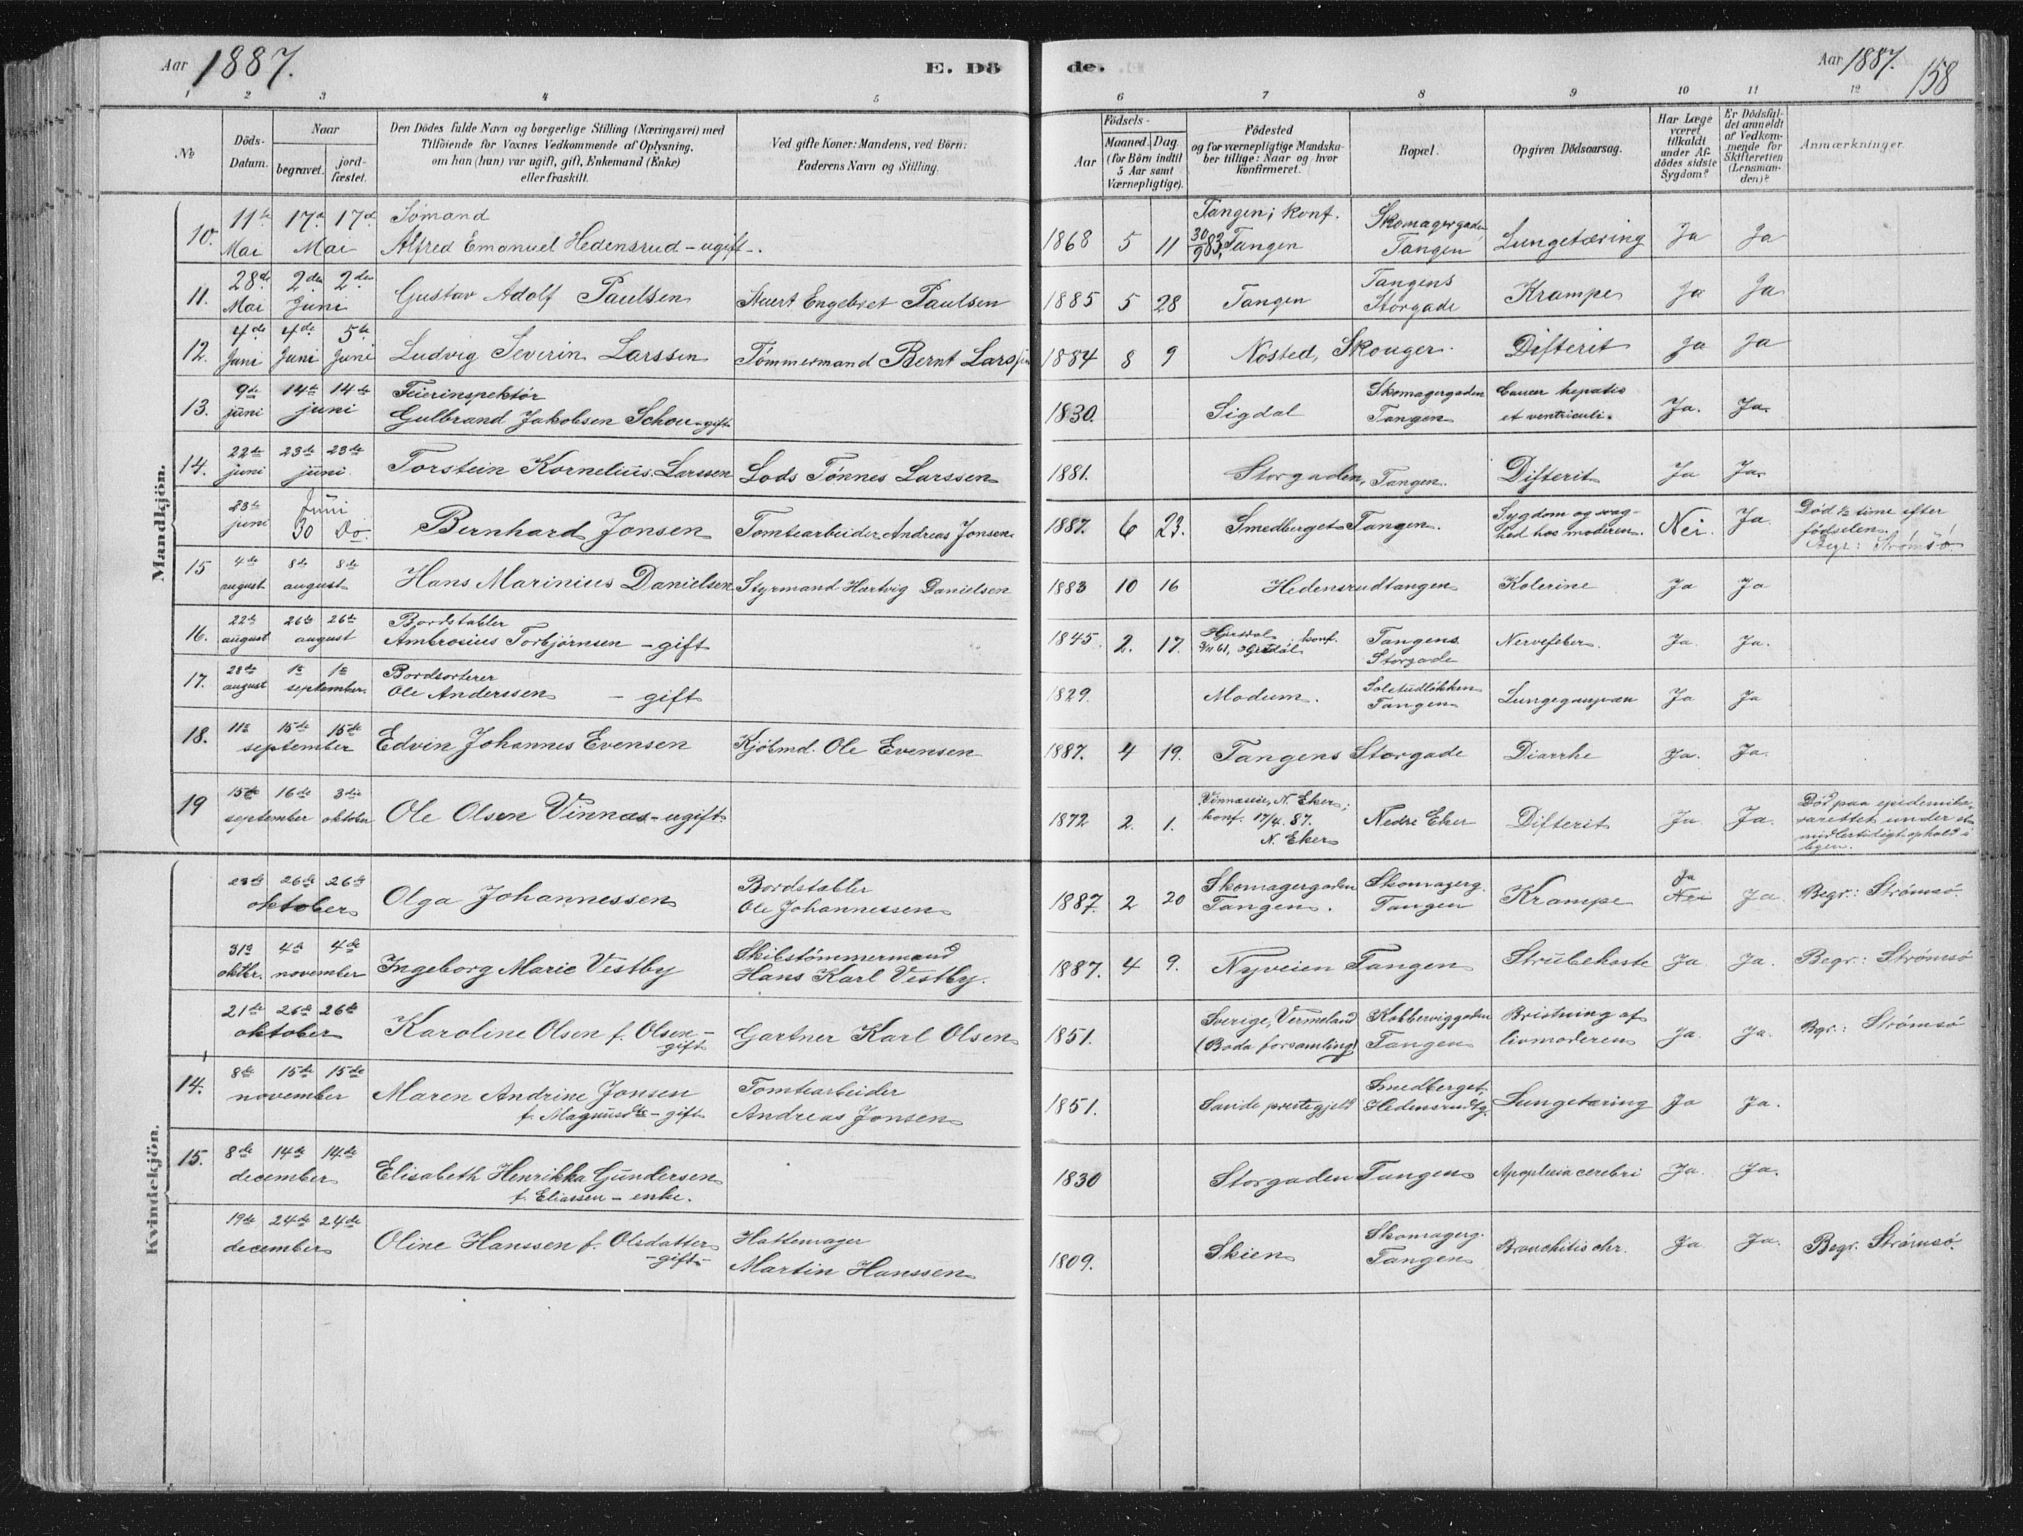 Aar 1887.
E. Dö
de.
Aar 1887.
158
1 2 3 4 5
6 7 8 9 10 11 12
No
Döds-
Datum.
Naar
begravet.
jord-
fæstet.
Den Dödes fulde Navn og borgerlige Stilling (Næringsvei) med
Tilföiende for Voxnes Vedkommende af Oplysning,
om han (hun) var ugift, gift, Enkemand (Enke)
eller fraskilt.
Ved gifte Koner: Mandens, ved Börn:
Faderens Navn og Stilling.
Födsels-
Aar
Maaned.
Dag.
(for Börn indtil
5 Aar samt
Værnepligtige).
Födested
og for værnepligtige Mandska-
ber tillige: Naar og hvor
konfirmeret.
Bopæl.
Opgiven Dödsaarsag.
Har Læge
været
tilkaldt
under Af-
dödes sidste
Sygdom?
Er Dödsfal-
det anmeldt
af Vedkom-
mende for
Skifteretten
(Lensman-
den)?
Anmærkninger.
Mandkjön.
10. 11te Mai 17de 17de Mai Sømand
Alfred Emanuel Hedensrud - ugift. 1868 5 11 Tangen; konf.
30/9 83, Tangen Skomagergaden
Tangen Lungetæring Ja Ja
11. 28de Mai 2den 2den Juni Gustav Adolf Paulsen Engebret Paulsen 1885 5 28 Tangen Tangens
Storgade Krampe Ja Ja
12. 4de Juni 4de Juni 5te Juni Ludvig Severin Larssen Tømmermand Bernt Larssen 1884 8 9 Nøsted, Skouger. Difterit Ja Ja
13. 9de juni 14de 14de juni Feierinspektør
Gulbrand Jakobsen Schou - gift 1830. Sigdal Skomagergaden
Tangen Cancer hepatis
et ventriculi. Ja. Ja.
14. 22de juni 23de 23de juni Torstein Kornelius Larssen Lods Tønnes Larssen 1881. Storgaden, Tangen. Difterit Ja Ja.
23de juni Juni
30 Do. Bernhard Jonsen Tomtearbeider Andreas Jonsen. 1887. 6 23. Smedberget Tangen. Sygdom og svag-
hed hos moderen. Nei. Ja Død ½ time efter
fødselen.
Begr: Strømsø
15 4de august 8de 8de august Hans Marinius Danielsen Styrmand Hartvig Danielsen 1883 10 16 Hedensrudtangen Kolerine Ja Ja
16. 22de august 26de 26de august Bordstabler
Ambrosius Torbjørnsen - gift 1845. 2. 17. konf. Tangens
Storgade Nervefeber. Ja Ja.
17. 28de august 1ste 1ste september. Bordsorterer
Ole Anderssen - gift 1829. Modum.
Tangen Ja Ja
18. 11te 15de 15de september Edvin Johannes Evensen Kjøbmd. Ole Evensen 1887. 4 19. Tangens Storgade Diarrhe Ja. Ja.
19 15de 16de september 3die oktober Ole Olsen Vinnæs - ugift. 1872 2. 1. N. Eker;
konf. 17/4. 87.
N. Eker Nedre Eker Difterit Ja Ja. Død paa epidemila-
zarettet under et
midlertidigt ophold i
byen.
Kvindekjön.
23de 26de 26de oktober Olga Johannessen Bordstabler
Ole Johannessen 1887. 2 20 Skomagergaden
Tangen. Skomagerg.
Tangen Krampe Ja
Nei Ja. Begr: Strømsø
31te oktbr. 4de 4de november Ingeborg Marie Vestby Skibstømmermand
Hans Karl Vestby. 1887. 4 9. Nyveien Tangen Strubehoste Ja. Ja. Begr: Strømsø
21de 26de 26de oktober Karoline Olsen f. Olsen -
gift Gartner Karl Olsen 1851. Sverige, Vermeland
(Boda forsamling) Kobberviggaden
Tangen Bristning af
livmoderen Ja. Ja. Bgr: Strømsø
14. 8de 15de 15de november Maren Andrine Jonsen
f. Magnusdtr - gift Tomtearbeider
Andreas Jonsen 1851. prestegjeld Smedberget,
Hedensrudtg. Lungetæring Ja Ja.
15. 8de 14de 14de december Elisabeth Henrikka Gundersen
f. Eliassen - enke. 1830 Storgaden Tangen Apoplexia cerebri Ja. Ja.
19de 24de 24de december Oline Hanssen f. Olsdatter
- gift - Hattemager
Martin Hanssen 1809. Skien Skomagerg.
Tangen Bronchitis chr. Ja Ja. Begr. Strømsø.